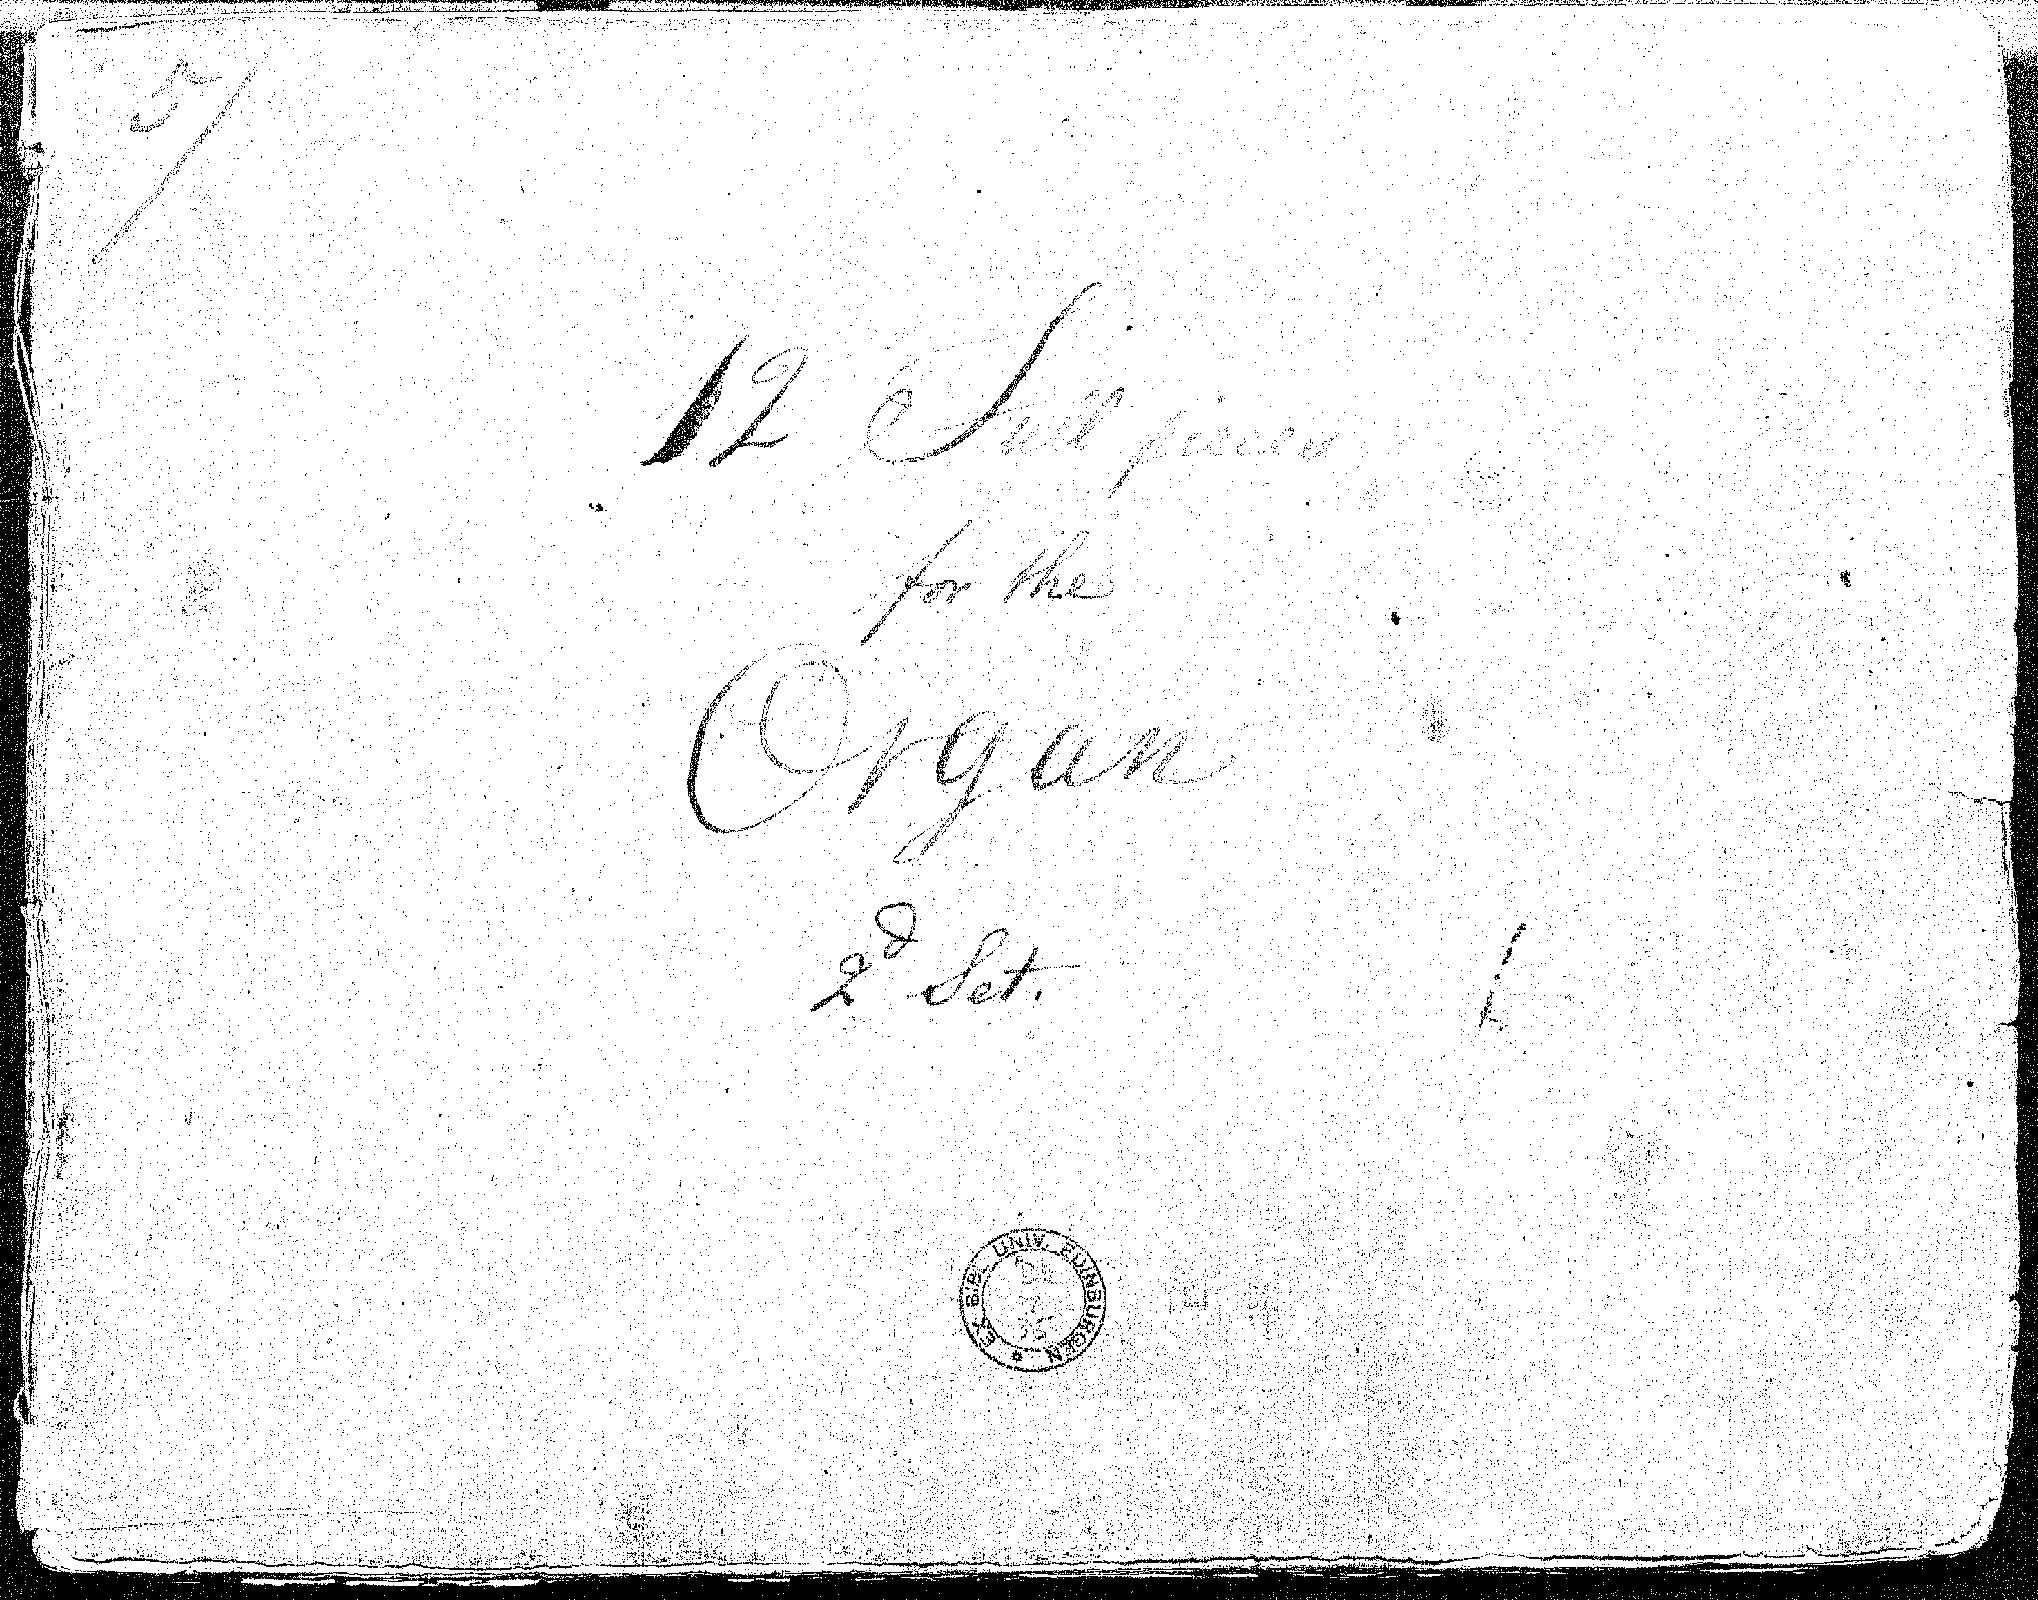 5/
12 Full pieces
for the
Organ
2d Set.
EX BIBL. UNIV. EDINBURGEN